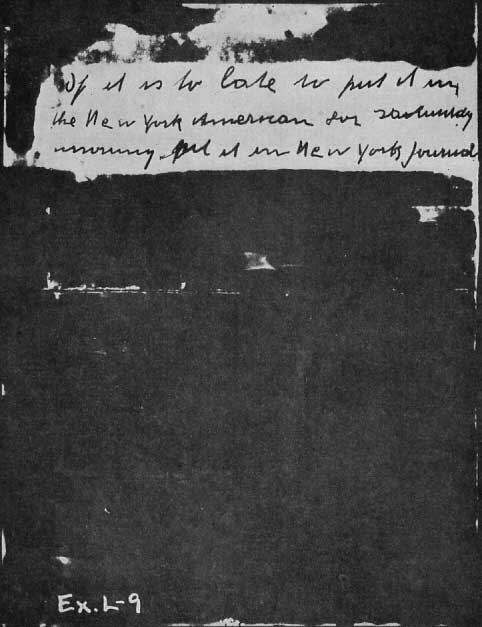 If it is to late to put it in
the New York American for
morning put it in New York Journal
Ex. L-9